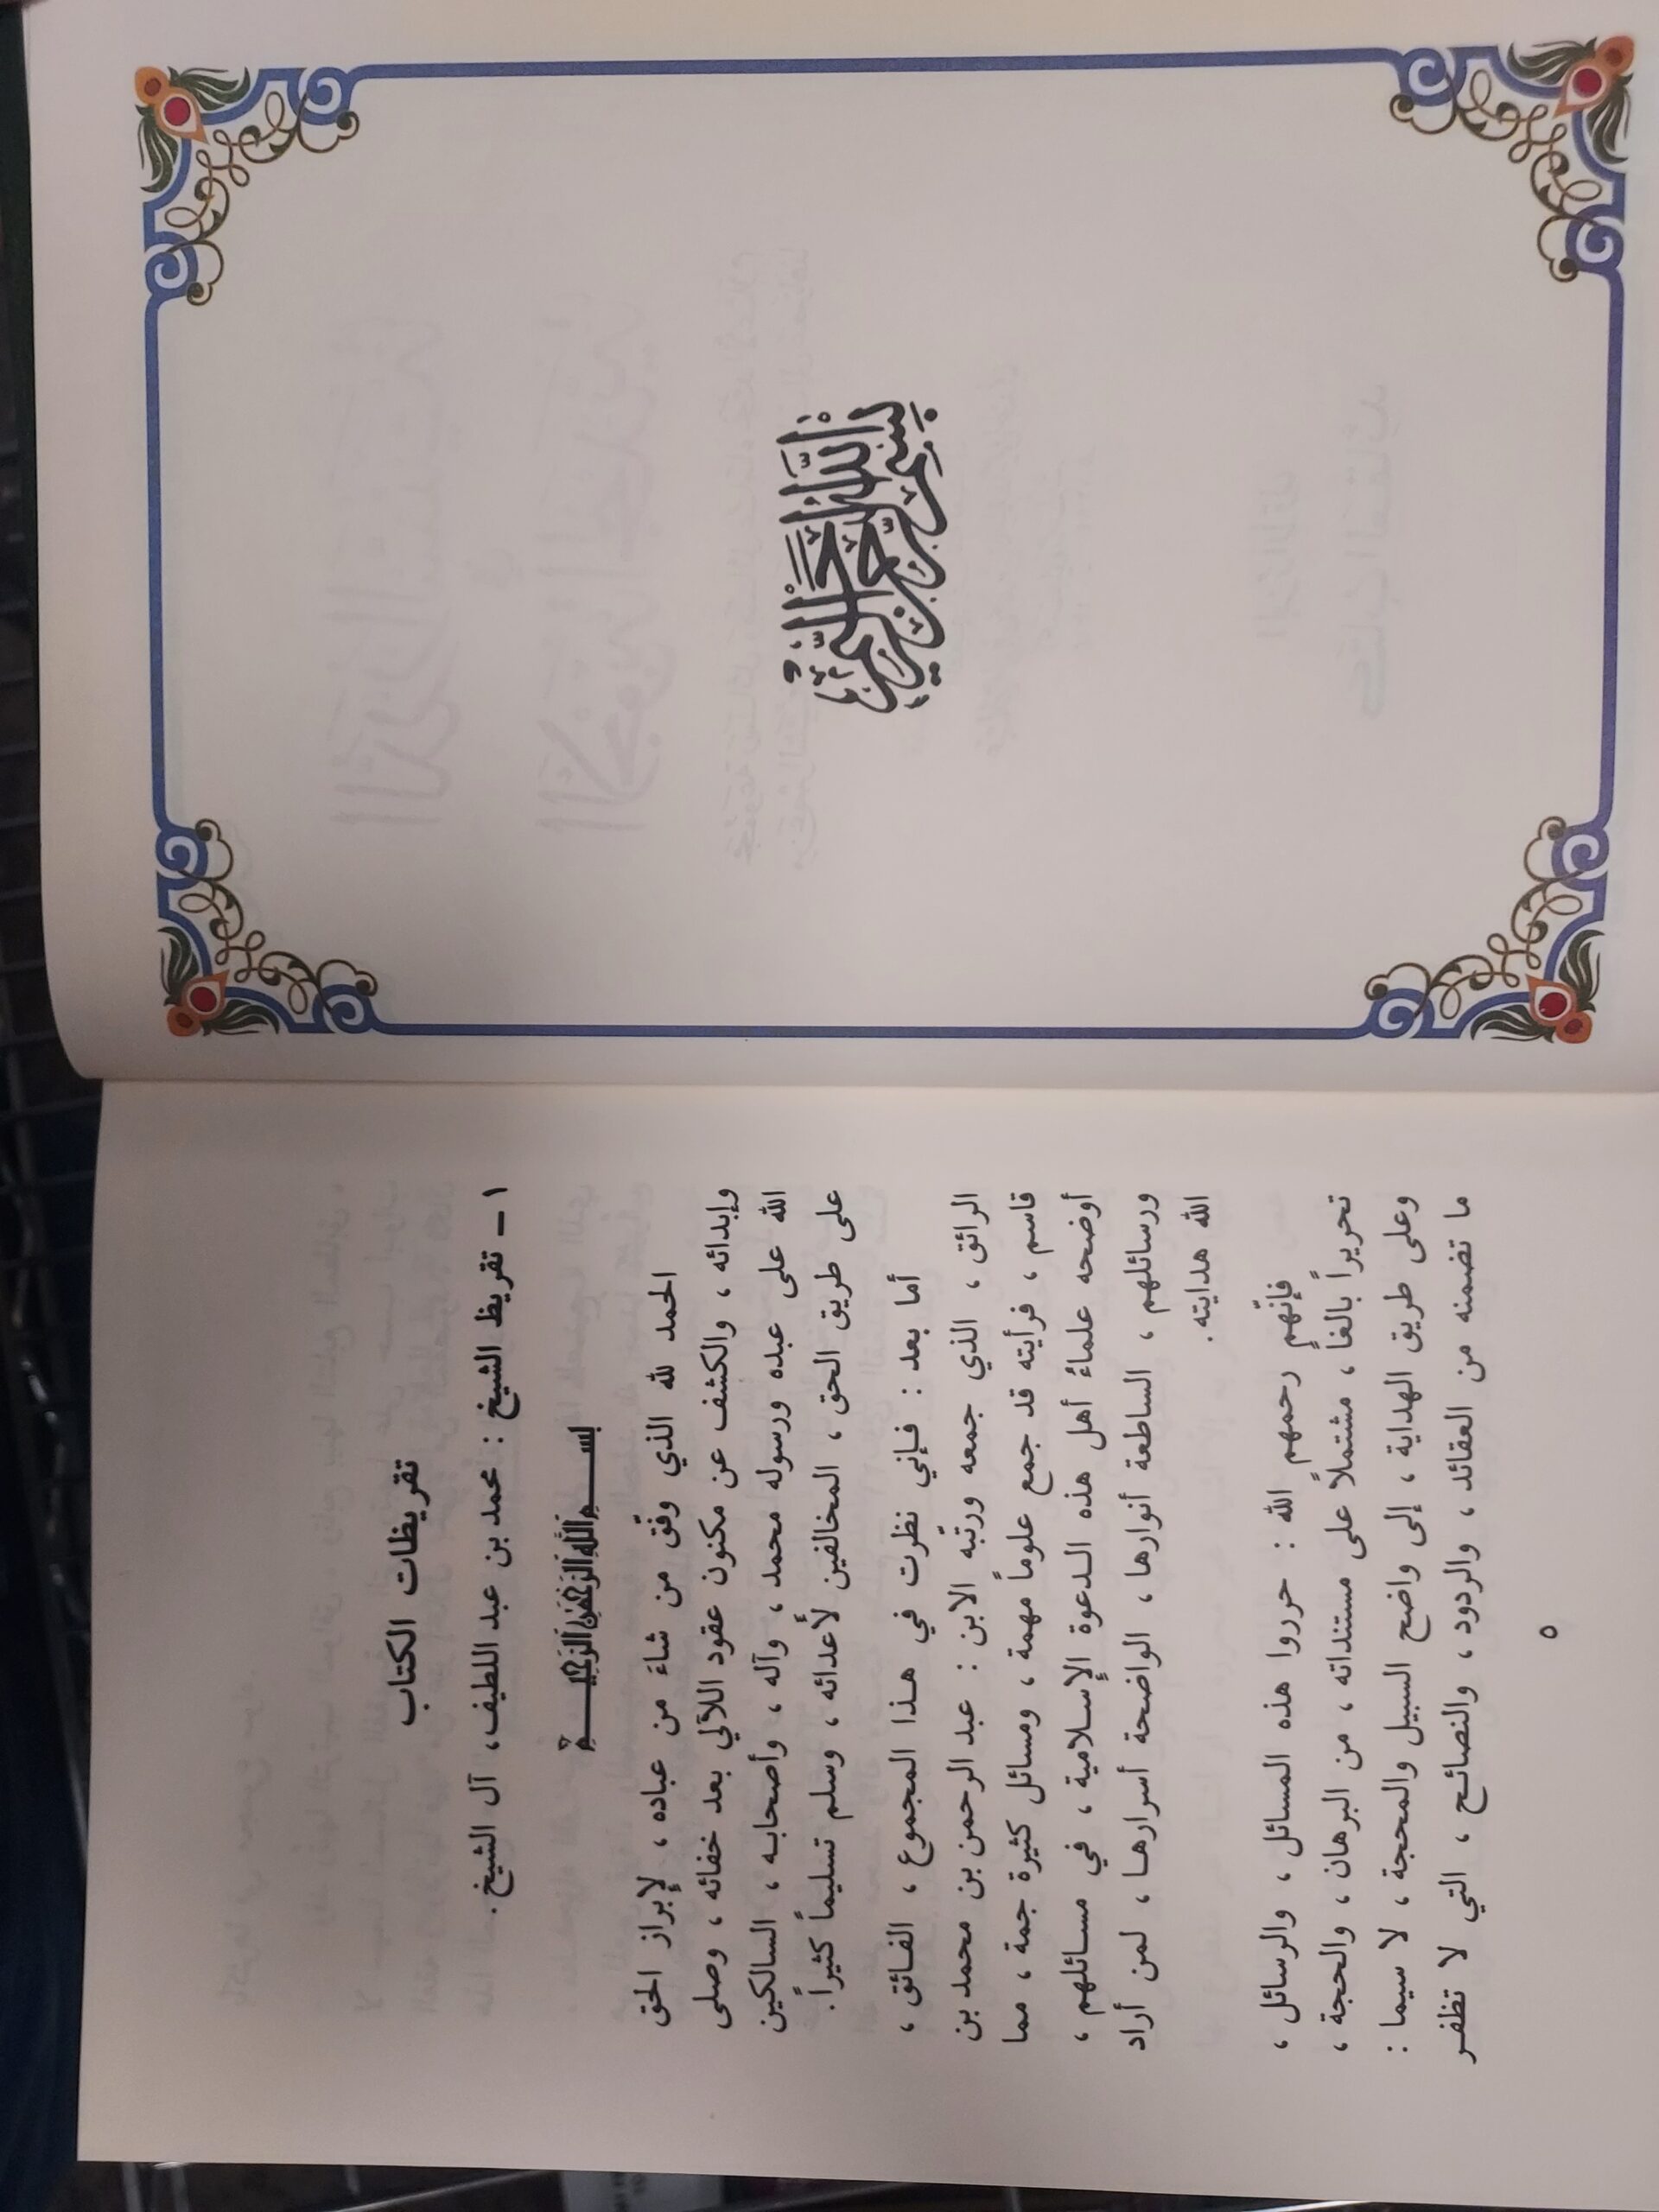 بسم الله الرحمن الرحيم
تقريظات الكتاب
١ – تقريظ الشيخ : محمد بن عبد اللطيف، آل الشيخ .
بسم الله الرحمن الرحيم
الحمد لله الذي وفّق من شاءَ من عباده ، لإبراز الحق
وإبدائه ، والكشف عن مكنون عقود اللآلي بعد خفائه ، وصلى
الله على عبده ورسوله محمد ، وآله ، وأصحابه ، السالكين
على طريق الحق ، المخالفين لأعدائه ، وسلم تسليماً كثيراً.
أما بعد : فإني نظرت في هذا المجموع ، الفائق ،
الرائق ، الذي جمعه ورتّبه الابن : عبد الرحمن بن محمد بن
قاسم ، فرأيته قد جمع علوماً مهمة ، ومسائل كثيرة جمة ، مما
أوضحه علماءُ أهل هذه الدعوة الإسلامية ، في مسائلهم ،
ورسائلهم ، الساطعة أنوارها ، الواضحة أسرارها ، لمن أراد
الله هدايته.
فإنّهم رحمهم الله : حرروا هذه المسائل ، والرسائل ،
تحريراً بالغاً ، مشتملاً على مستنداته ، من البرهان ، والحجة ،
وعلى طريق الهداية ، إلى واضح السبيل والمحجة ، لا سيما :
ما تضمنه من العقائد ، والردود ، والنصائح ، التي لا تظفر
٥